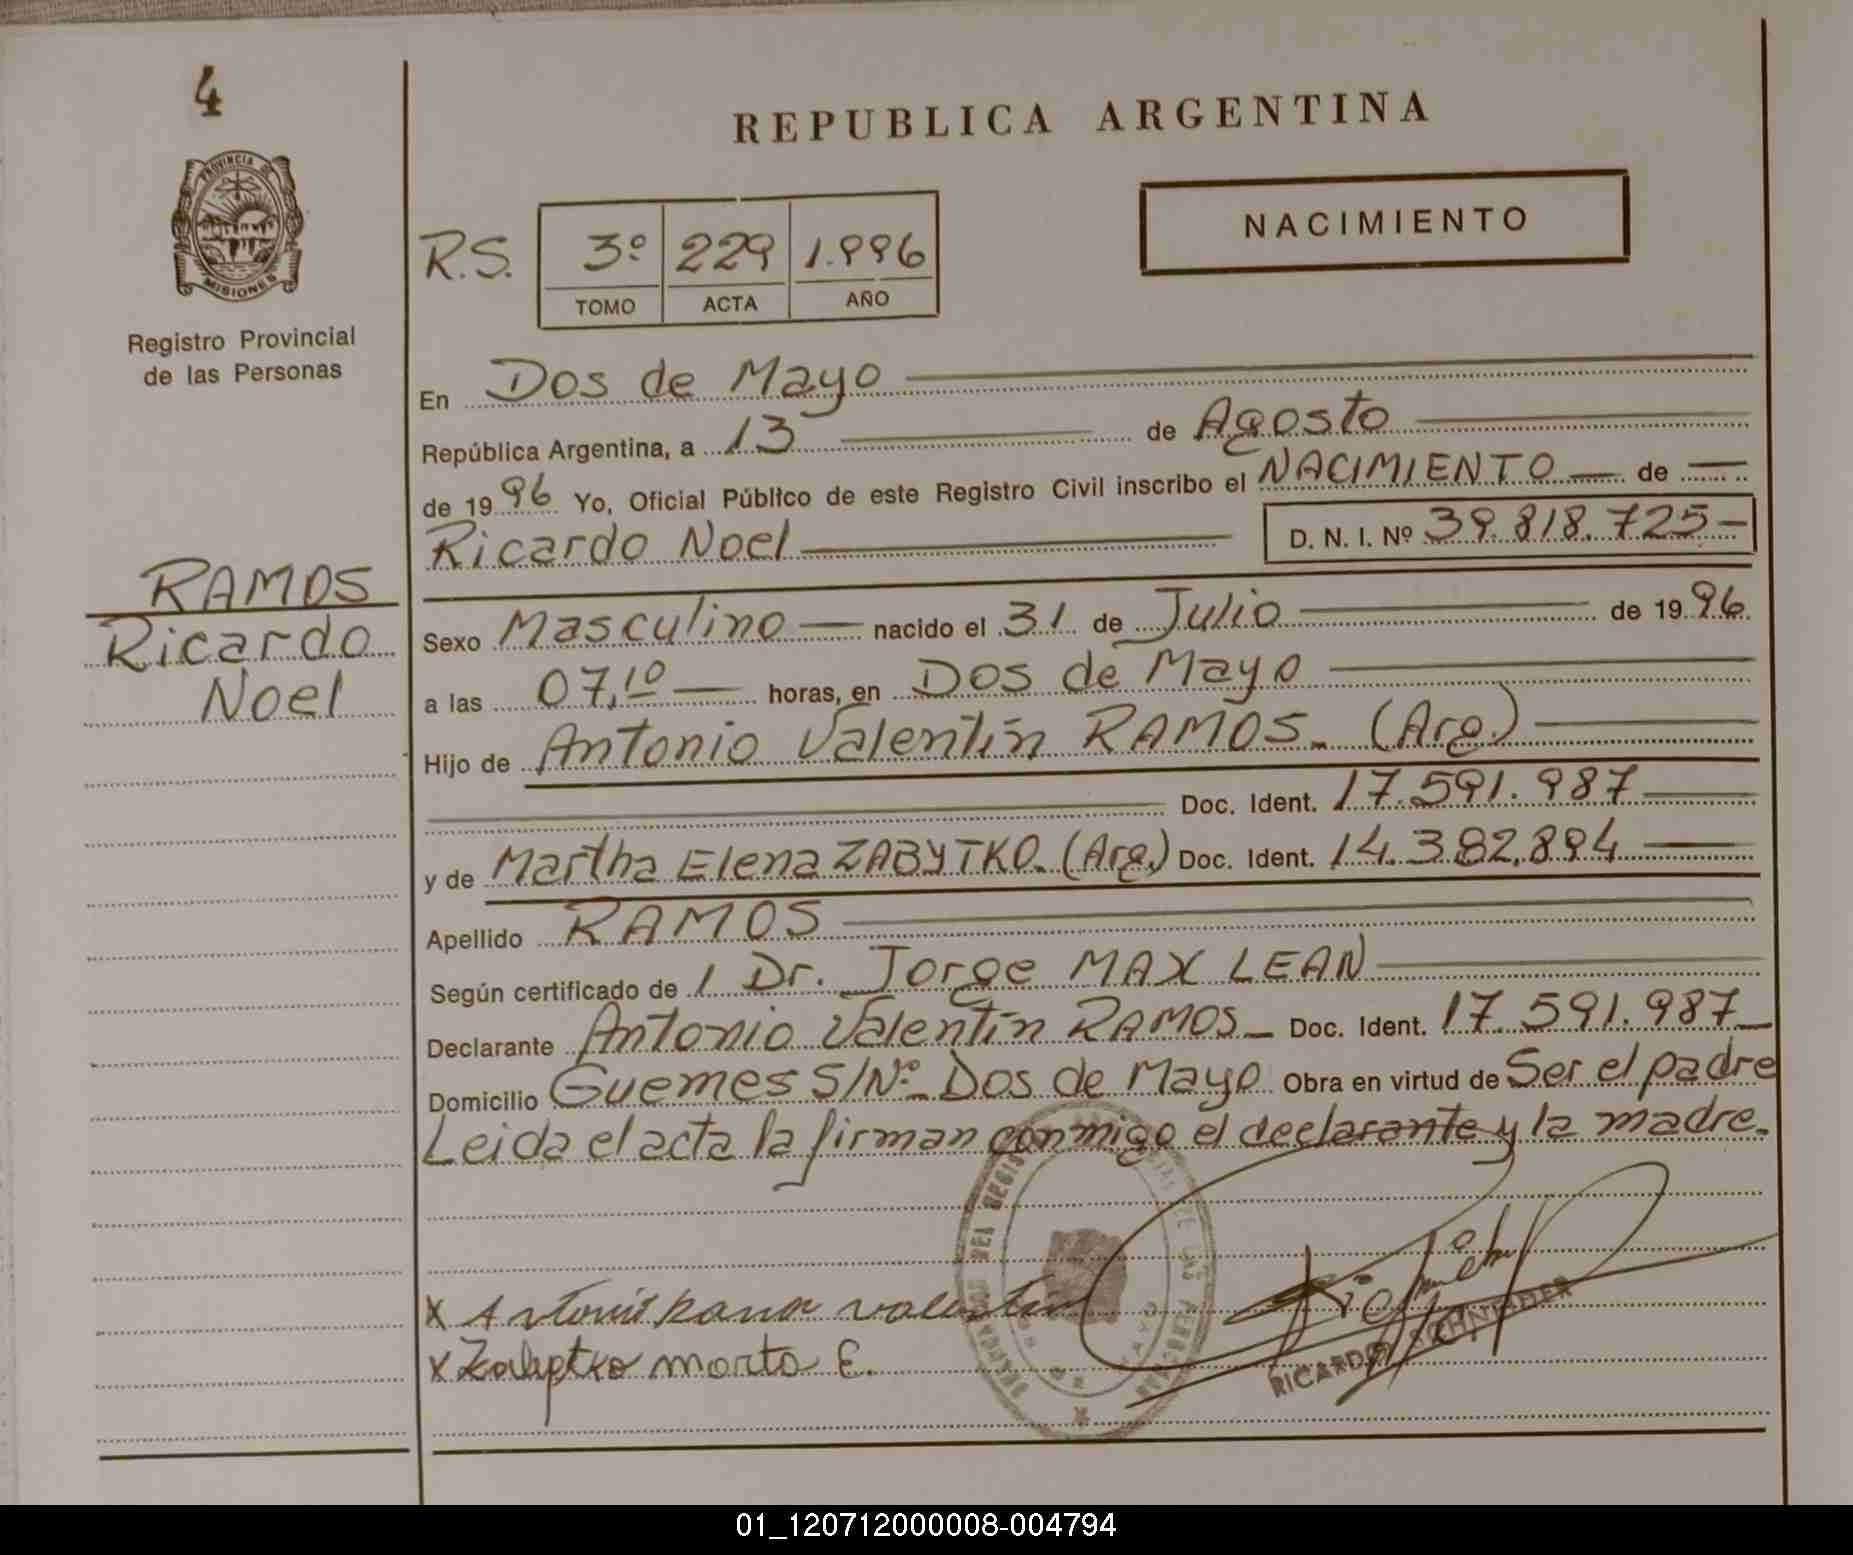 4
PROVINCIA DE
MISIONES
Registro Provincial
de las Personas
RAMOS
Ricardo
Noel
REPUBLICA ARGENTINA
NACIMIENTO
R.S. 3º 229 1.996
TOMO ACTA AÑO
En Dos de Mayo
República Argentina, a 13 de Agosto
de 1996 Yo, Oficial Público de este Registro Civil inscribo el NACIMIENTO de
Ricardo Noel D. N. I. Nº 39.818.725
Sexo Masculino nacido el 31 de Julio de 1996.
a las 07,10 horas, en Dos de Mayo
Hijo de Antonio Valentín RAMOS. (Arg.)
Doc. Ident. 17.591.987
y de Martha Elena ZABYTKO. (Arg.) Doc. Ident. 14.382.894
Apellido RAMOS
Según certificado de / Dr. Jorge MAX LEAN
Declarante Antonio Valentín RAMOS Doc. Ident. 17.591.987
Domicilio Guemes S/Nº Dos de Mayo Obra en virtud de Ser el padre
Leida el acta la firman conmigo el declarante y la madre.
X Antonio Ramos Valentin
X Zabytko marta E.
RICARDO SCHNTEMEIER
01_120712000008-004794